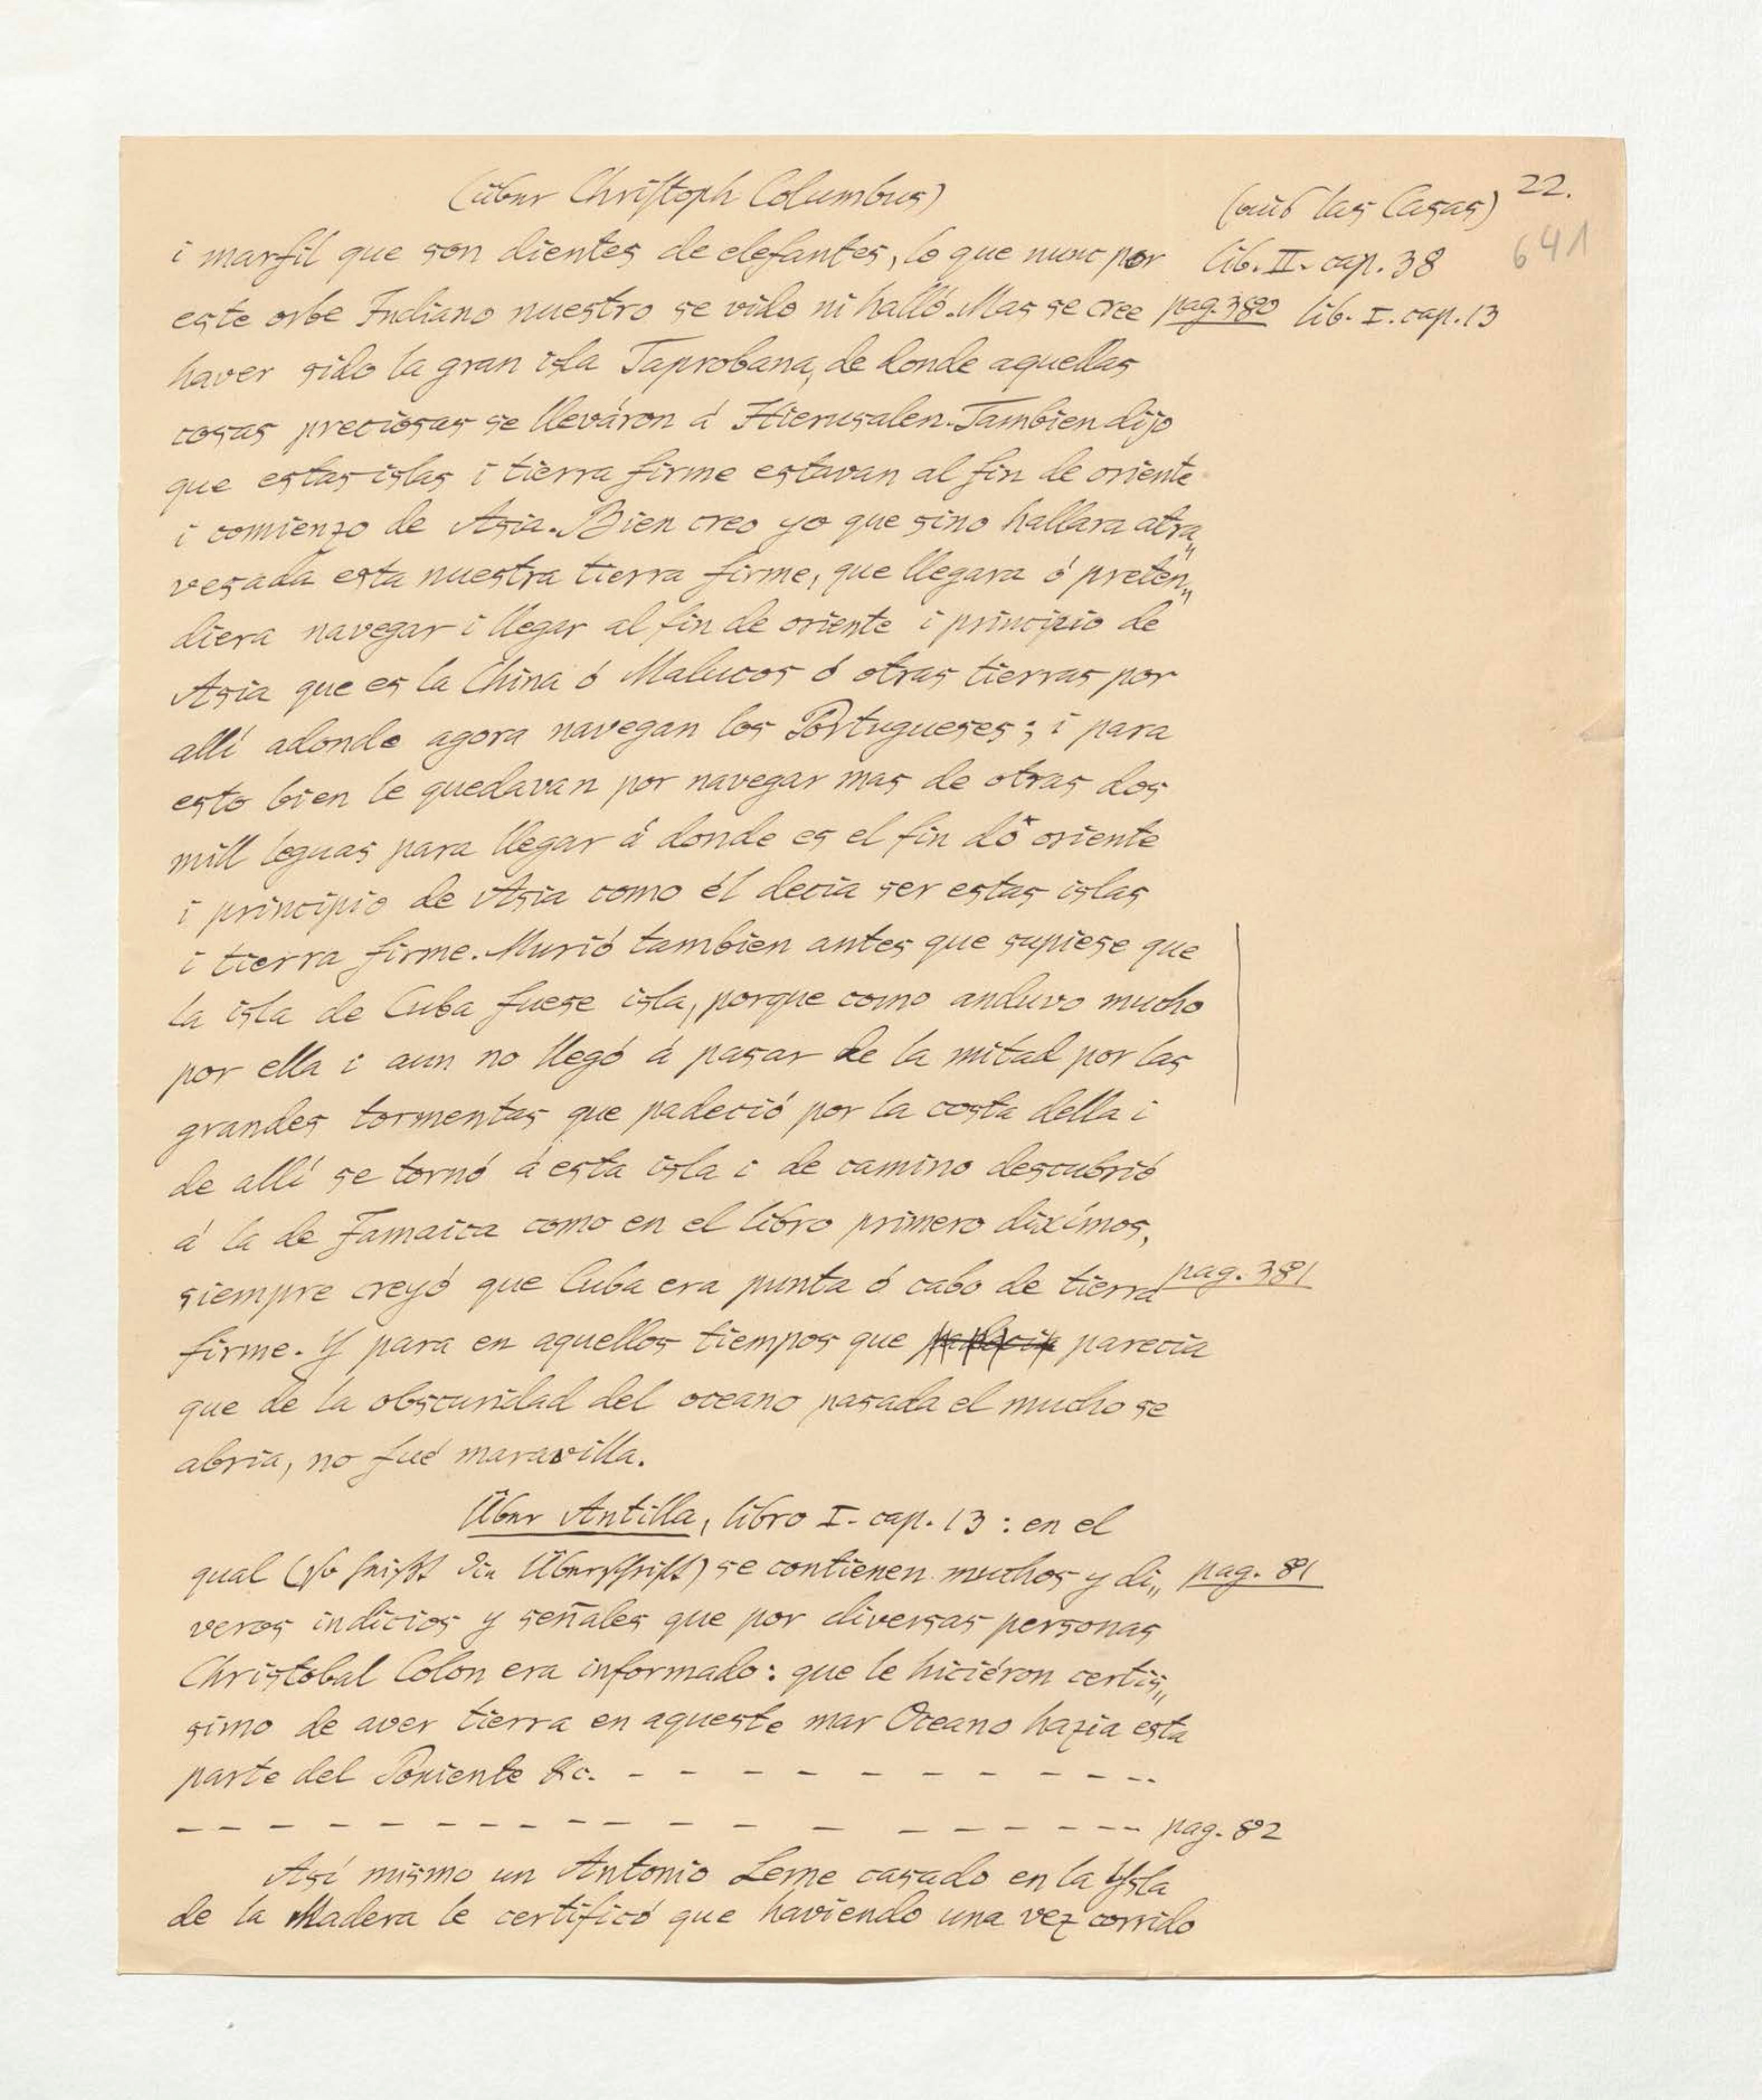 (über Christoph Columbus)
(aus las Casas) 22.
641
i marfil que son dientes de elefantes, lo que nunc por lib. II. cap. 38
este orbe Indiano nuestro se vido ni halló. Mas se cree pag. 380 lib. I. cap. 13
haver sido la gran isla Taprobana, de donde aquellas
cosas preciosas se lleváron á Hierusalen. Tambien dijo
que estas islas i tierra firme estavan al fin de oriente
i comienzo de Asia. Bien creo yo que sino hallara atra„
vesada esta nuestra tierra firme, que llegara ó preten„
diera navegar i llegar al fin de oriente i principio de
Asia que es la China ó Malucos ó otras tierras por
allí adonde agora navegan los Portugueses; i para
esto bien le quedavan por navegar mas de otras dos
mill leguas para llegar á donde es el fin dó oriente
i principio de Asia como él decia ser estas islas
i tierra firme. Murió tambien antes que supiese que
la isla de Cuba fuese isla, porque como anduvo mucho
por ella i aun no llegó á pasar de la mitad por las
grandes tormentas que padeció por la costa della i
de allí se tornó á esta isla i de camino descubrió
á la de Jamaica como en el libro primero diximos,
siempre creyó que Cuba era punta ó cabo de tierra pag. 381
firme. Y para en aquellos tiempos que parecia
que de la obscuridad del oceano pasada el mucho se
abria, no fué maravilla.
Über Antilla, libro I. cap. 13 : en el
qual (so heißt die Überschrift) se contienen muchos y di„ pag. 81
veros indicios y señales que por diversas personas
Christobal Colon era informado: que le hiciéron certis„
simo de aver tierra en aqueste mar Oceano hazia esta
parte del Poniente &c. - - - - - - - - - - - -
- - - - - - - - - - - - - - - - - - - pag. 82
Asi mismo un Antonio Leme casado en la Ysla
de la Madera le certificó que haviendo una vez corrido